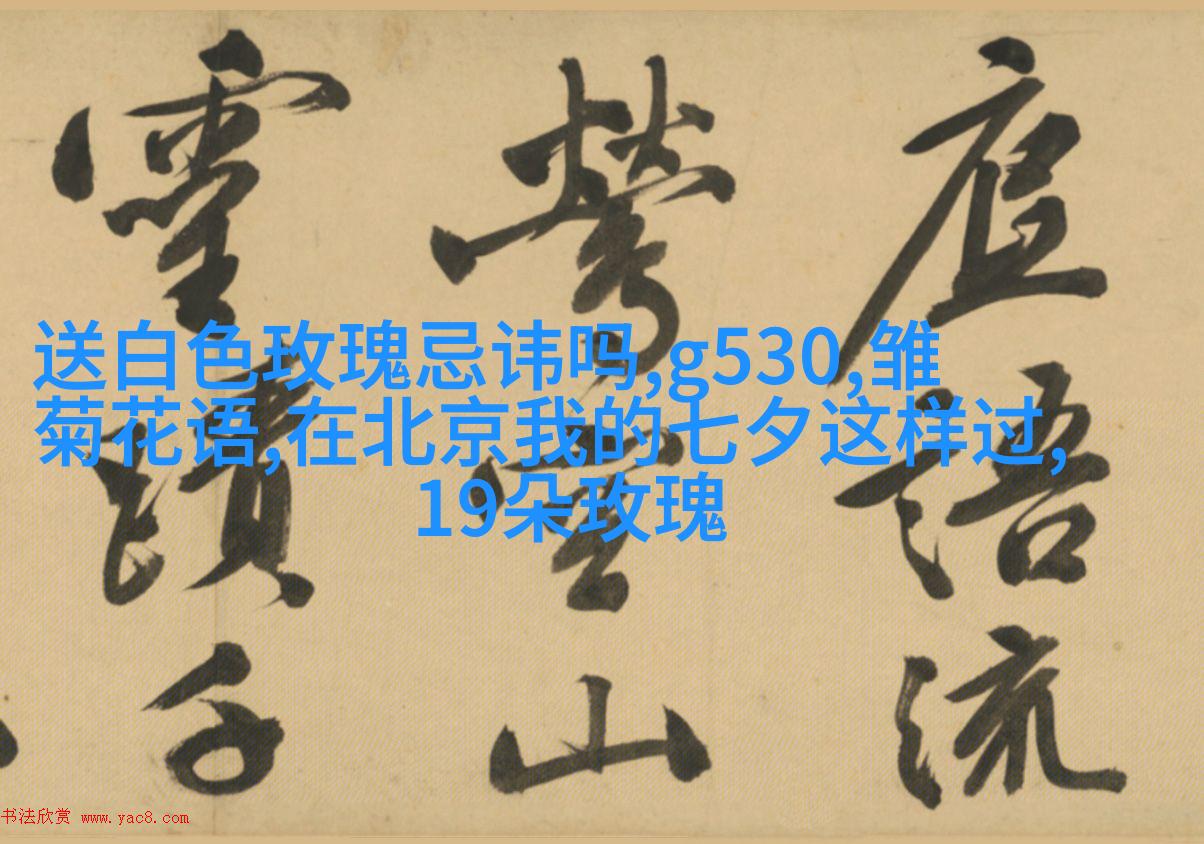 送白色玫瑰忌讳吗,g530,雏
菊花语,在北京我的七夕这样过,
19朵玫瑰
庭語流
鶯山
靈蹟千
书法欣赏 www.yac8.com